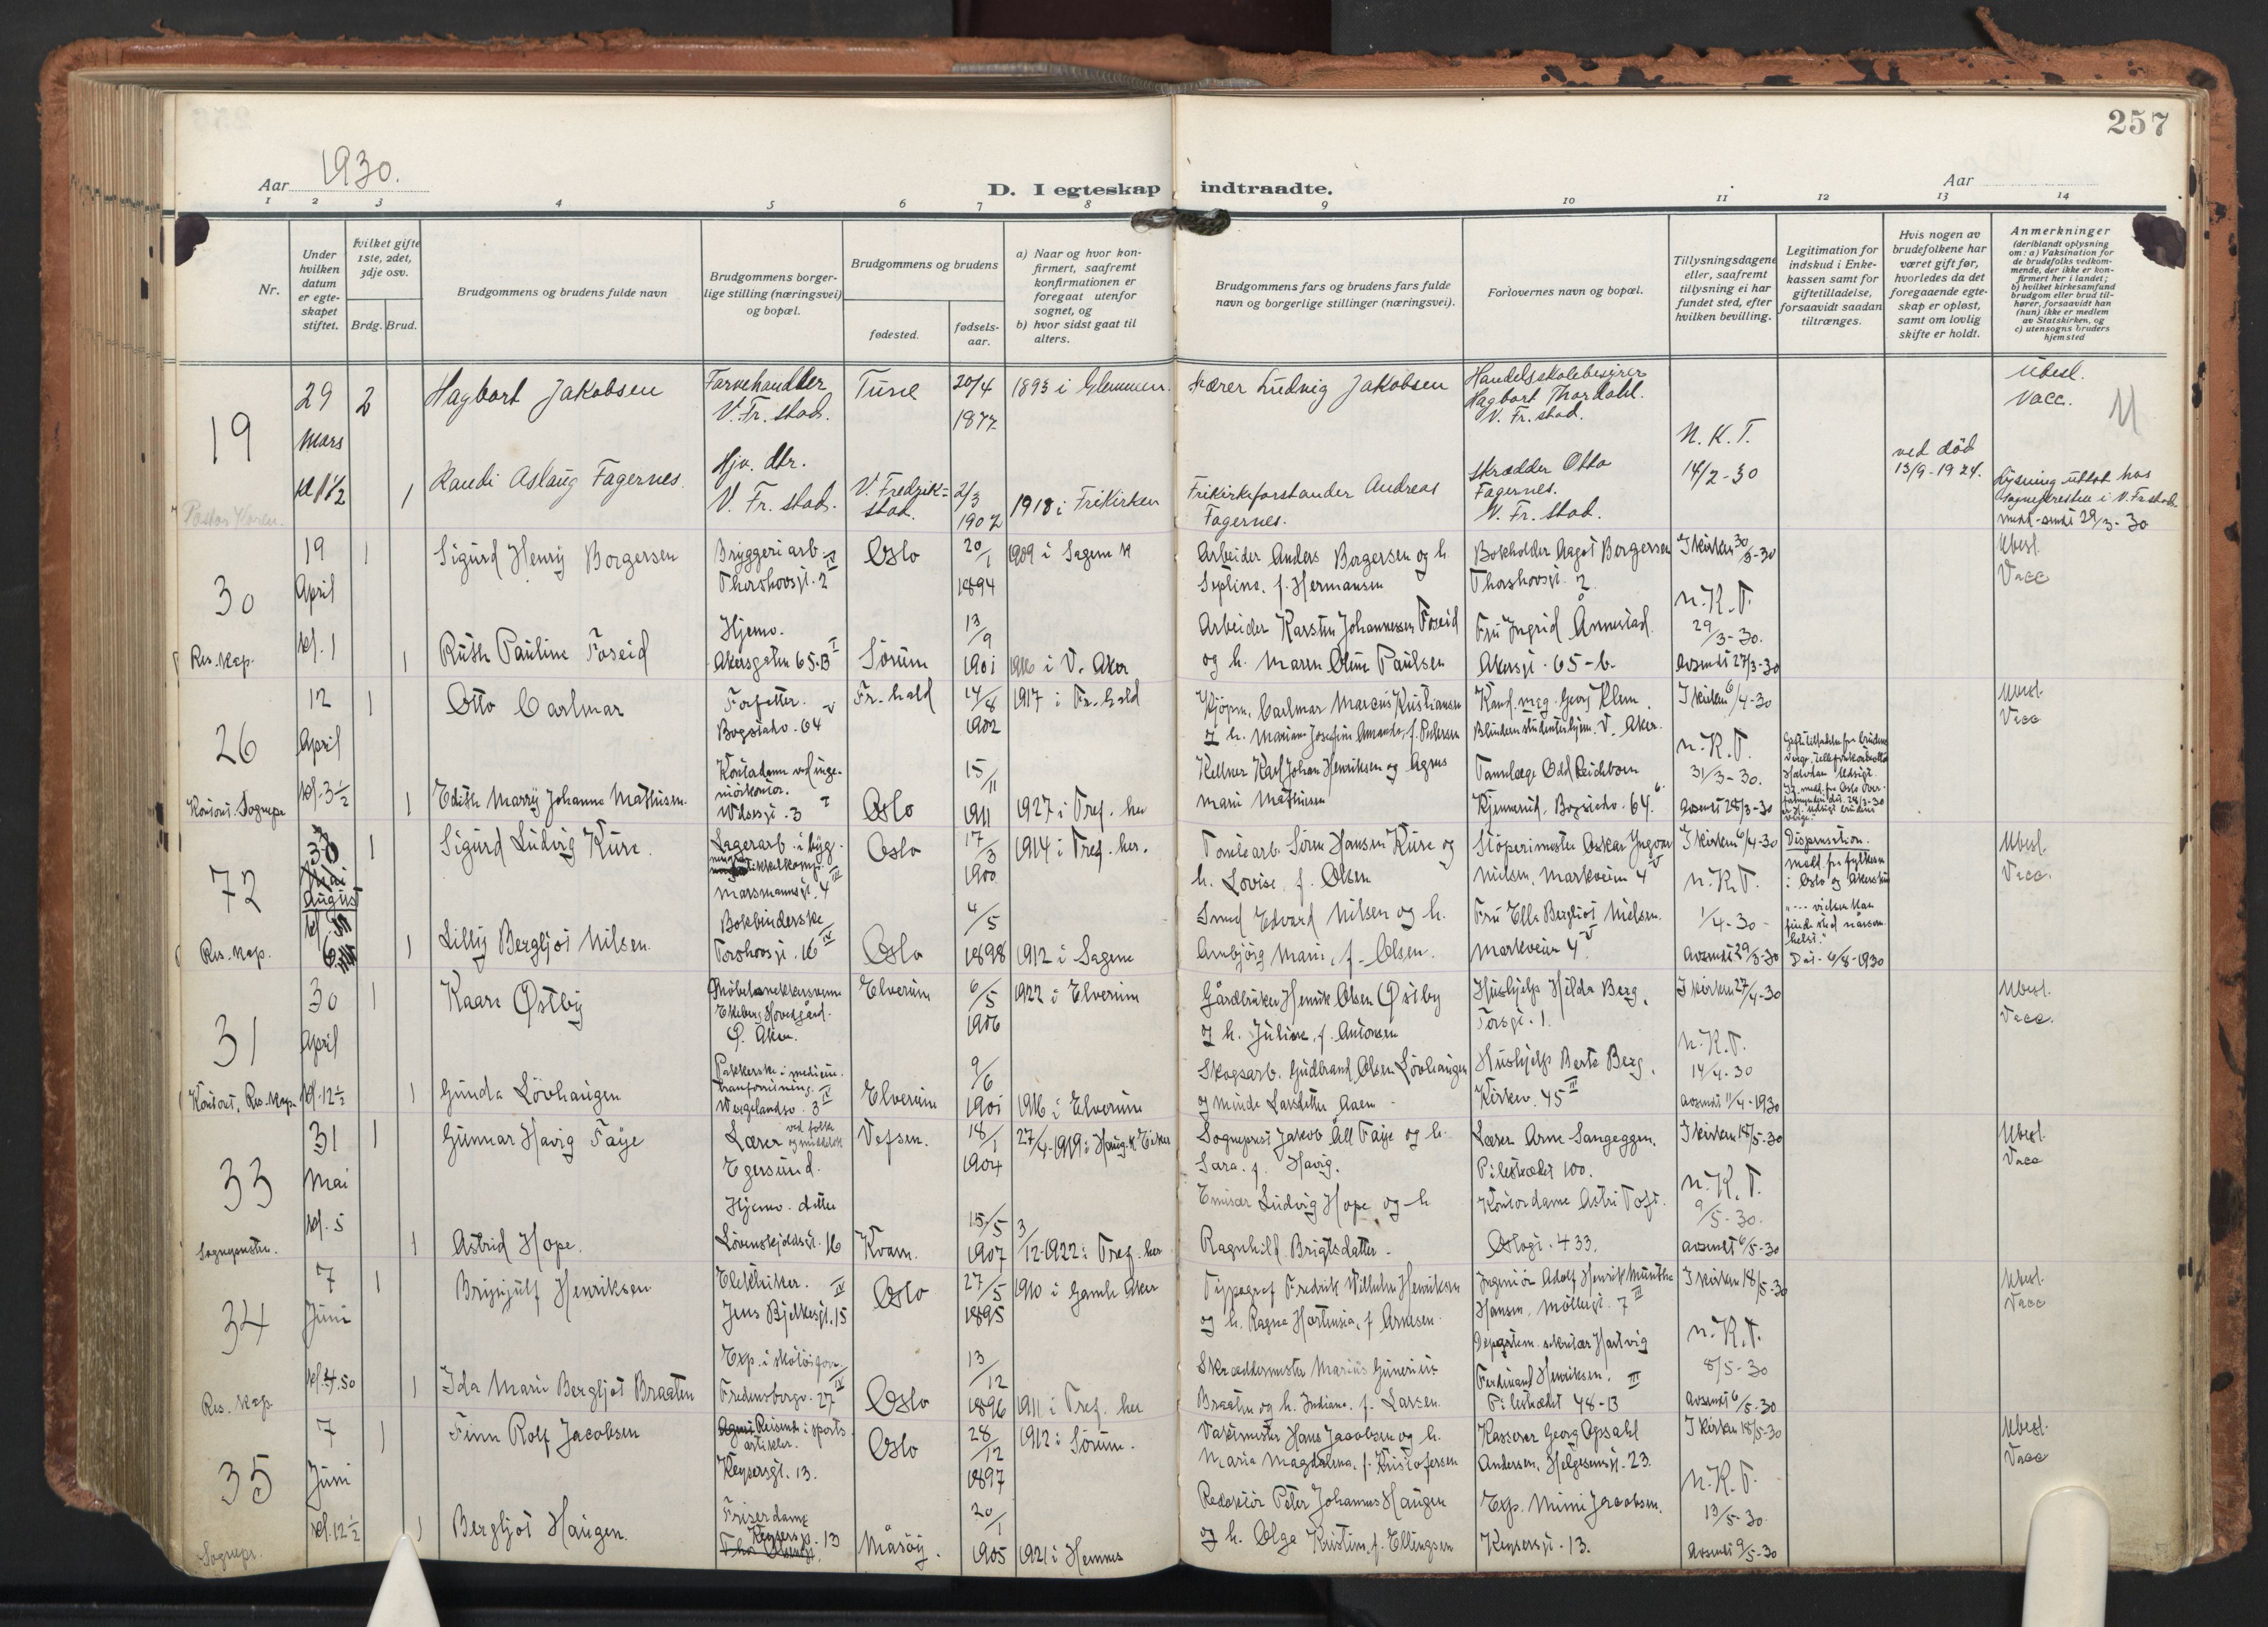 257
Aar 1930.
D. I egteskap indtraadte.
Aar
1 2 3 4 5 6 7 8 9 10 11 12 13 14
Nr.
Under hvilken datum er egteskapet stiftet.
Hvilket gifte 1ste, 2det, 3dje osv.
Brdg. Brud.
Brudgommens og brudens fulde navn
Brudgommens borgerlige stilling (næringsvei) og bopæl.
Brudgommens og brudens
fødested.
fødselsaar.
a) Naar og hvor konfirmert, saafremt konfirmationen er foregaat utenfor sognet, og
b) hvor sidst gaat til alters.
Brudgommens fars og brudens fars fulde navn og borgerlige stillinger (næringsvei).
Forlovernes navn og bopæl.
Tillysningsdagene eller, saafremt tillysning ei har fundet sted, efter hvilken bevilling.
Legitimation for indskud i Enkekassen samt for giftetilladelse, forsaavidt saadan tiltrænges.
Hvis nogen av brudefolkene har været gift før, hvorledes da det foregaaende egteskap er opløst, samt om lovlig skifte er holdt.
Anmerkninger
(deriblandt oplysning om: a) Vaksination for de brudefolks vedkommende, der ikke er konfirmert her i landet;
b) hvilket kirkesamfund brudgom eller brud tilhører, forsaavidt han (hun) ikke er medlem av Statskirken, og
c) utensogns bruders hjemsted
19
29 Mars kl 1 1/2
2
Hagbart Jakobsen
Farvehandler
V. Fr. stad.
Tune
20/4
1877
1893 i Glemmen.
Lærer Ludvig Jakobsen
Handelsskolebestyrer
Hagbart Thordahl.
V. Fr. stad.
N. K. T.
14/2-30
ved død
13/9-1924.
Ubesl.
Vacc.
1
Randi Aslaug Fagernes.
Hjv. dtr.
V. Fr. stad.
V. Fredrik=
stad.
2/3
1907
1918 i Frikirken
Frikirkeforstander Andreas
Fagernes.
Skrædder Otto
Fagernes.
V. Fr. stad.
Lysning uttat hos
Sognepresten i V. Fr.stad.
Medd. sendt 29/3-30
30
19 April kl. 1
Res. kap.
1
Sigurd Henry Borgersen
Bryggeriarb. IV
Thorshovsgt. 2
Oslo
20/1
1894
1909 i Sagene K
Arbeider Anders Borgersen og h.
Sepline, f. Hermansen
Bokholder Aagot Borgersen
Thorshovsgt. 2
I kirken 30/3-30
N. K. T.
29/3-30.
Avsendt 27/3-30
Ubesl.
Vacc
1
Ruth Pauline Foseid
Hjemv.
Akersgaten 65-B I
Sörum
13/9
1901
1916 i V. Aker
Arbeider Karsten Johannessen Foseid
og h. Maren Oline Paulsen
Fru Ingrid Ånnestad.
Akersgt. 65-b.
26
12 April kl. 3 1/2
Konst. Sognepr.
1
Otto Carlmar
Forfatter. V
Bogstadv. 64
Fr. hald
14/8
1902
1917 i Fr. hald
Kjöpm. Carlmar Marcus Kristiansen
og h. Mariane Josefine Amanda, f. Pedersen
Kand. mag. Georg Klem.
Blindern studenterhjem. V. Aker.
I kirken 6/4-30
N. K. T.
31/3-30.
Avsendt 28/3-30
Ubesl.
Vacc
1
Edith Marry Johanne Mathisen.
Kontordame ved inge-
niörkontor.
Oslo
15/11
1911
1927 i Tref. her
Kellner Karl Johan Henriksen og Agnes
Marie Mathisen
Tannlæge Odd Reichborn
Kjennerud, Bogstadv. 64.
72
30 Mai
August
kl. 6
Res. kap.
1
Sigurd Ludvig Kure.
Lagerarb. i byg-
Marsmannsgt. 4 III
Oslo
17/3
1900
1914 i Tref. her.
Tomtearb. Sören Hansen Kure og
h. Lovise, f. Olsen
Stöperimester Oskar Ingvar
Nielsen, Markveien 4 V
I kirken 6/4-30
N. K. T.
1/4-30
Avsendt 29/3-30
Dispensation.
medd. fra fylkesm.
i Oslo og Akershus
Dat. 4/8-1930
Ubesl.
Vacc.
1
Lilly Bergljot Nilsen.
Bokbinderske
Torshovsgt. 16 IV
Oslo
4/5
1898
1912 i Sagene
Smed Edvard Nilsen og h.
Arnbjörg Marie, f. Olsen.
Fru Ella Bergliot Nielsen.
Markveien 4 V
31
30 April kl. 12 1/2
Konst. Res. kap.
1
Kaare Østby
Möbelsnekkersvenn
Ekeberg Hovedgård.
Ø. Aker.
Elverum
6/5
1906
1922 i Elverum
Gårdbruker Henrik Olsen Østby
og h. Juliane, f. Antonsen
Hushjelp Hilda Berg.
Torsgt. 1.
I kirken 27/4-30
N. K. T.
14/4-30
Avsendt 11/4-1930
Ubesl.
Vacc.
1
Gunda Lövhaugen
Pakkerske i medicin-
Wergelandsv. 3 IV
Elverum
9/6
1901
1916 i Elverum
Skogsarb. Gudbrand Olsen Lövhaugen
og Minde Larsdatter Aaen
Hushjelp Berte Berg.
Kirkev. 45 III
33
31 Mai kl. 5
Sognepresten.
1
Gunnar Havig Faye
Lærer ved folke
og middelsk.
Egersund.
Vefsen.
18/1
1904
27/4-1919 i Haug. k. Eiker
Sogneprest Jakob Åll Faye og h.
Sara. f. Havig.
Lærer Arne Sangeggen.
Pilestrædet 100.
I kirken 18/5-30
N. K. T.
9/5-30.
Avsendt 6/5-30
Ubesl.
Vacc
1
Astrid Hope.
Hjemv. datter
Lövenskjoldsgt. 16
Kvam.
15/5
1907
3/12-1922 i Tref. her
Emissær Ludvig Hope og h
Ragnhild Brigtsdatter.
Kontordame Astri Toft.
Oslogt. 433.
34
7 Juni kl. 4.50
Res. kap.
1
Brynjulf Henriksen
Elektriker. IV
Jens Bjelkesgt. 15
Oslo
27/5
1895
1910 i Gamle Aker
Typograf Fredrik Wilhelm Henriksen
og h. Ragna Hortensia, f. Arnesen
Ingeniör Adolf Henrik Munthe
Hansen, Möllergt. 7 III
I kirken 18/5-30
N. K. T.
8/5-30
Avsendt 6/5-30
Ubesl.
Vacc
1
Ida Marie Bergljot Braaten
Exp. i skotöiforr.
Fredensborgv. 27 IV
Oslo
13/12
1896
1911 i Tref. her
Skræddermester Marius Gunerius
Braaten og h. Indiane, f. Larsen.
Departem. sekretær Hartvig
Ferdinand Henriksen. III
Pilestrædet 48-B
35
7 Juni kl. 12 1/2
Sognepr.
1
Finn Rolf Jacobsen
Agent Reisende i sports-
artikler.
Keysersgt. 13.
Oslo
28/12
1897
1912 i Sörum.
Vaktmester Hans Jacobsen og h.
Maria Magdalena, f. Kristofersen
Kasserer Georg Opsahl
Andersen, Helgesensgt. 23.
I kirken 18/5-30
N. K. T.
13/5-30.
Avsendt 9/5-30
Ubesl.
Vacc
1
Bergljot Haugen.
Friserdame
Keysersgt. 13
Måsöy.
20/1
1905
1921 i Hemnes
Redaktör Peter Johannes Haugen
og h. Olga Kristine, f. Ellingsen
Exp. Mimi Jacobsen.
Keysersgt. 13.